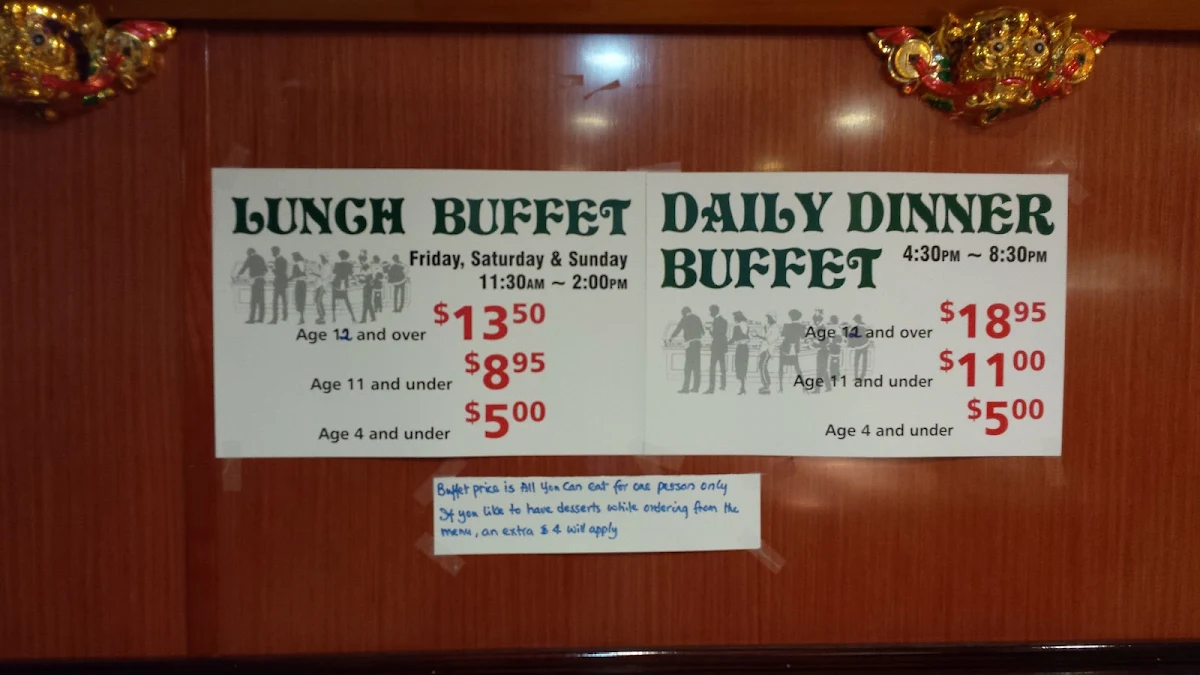 LUNCH BUFFET
Friday, Saturday & Sunday
11:30AM ~ 2:00PM
Age 12 and over $13.50
Age 11 and under $8.95
Age 4 and under $5.00
DAILY DINNER
BUFFET 4:30PM ~ 8:30PM
Age 12 and over $18.95
Age 11 and under $11.00
Age 4 and under $5.00
Buffet price is All You Can eat for one person only
If you like to have desserts while ordering from the
menu, an extra $4 will apply